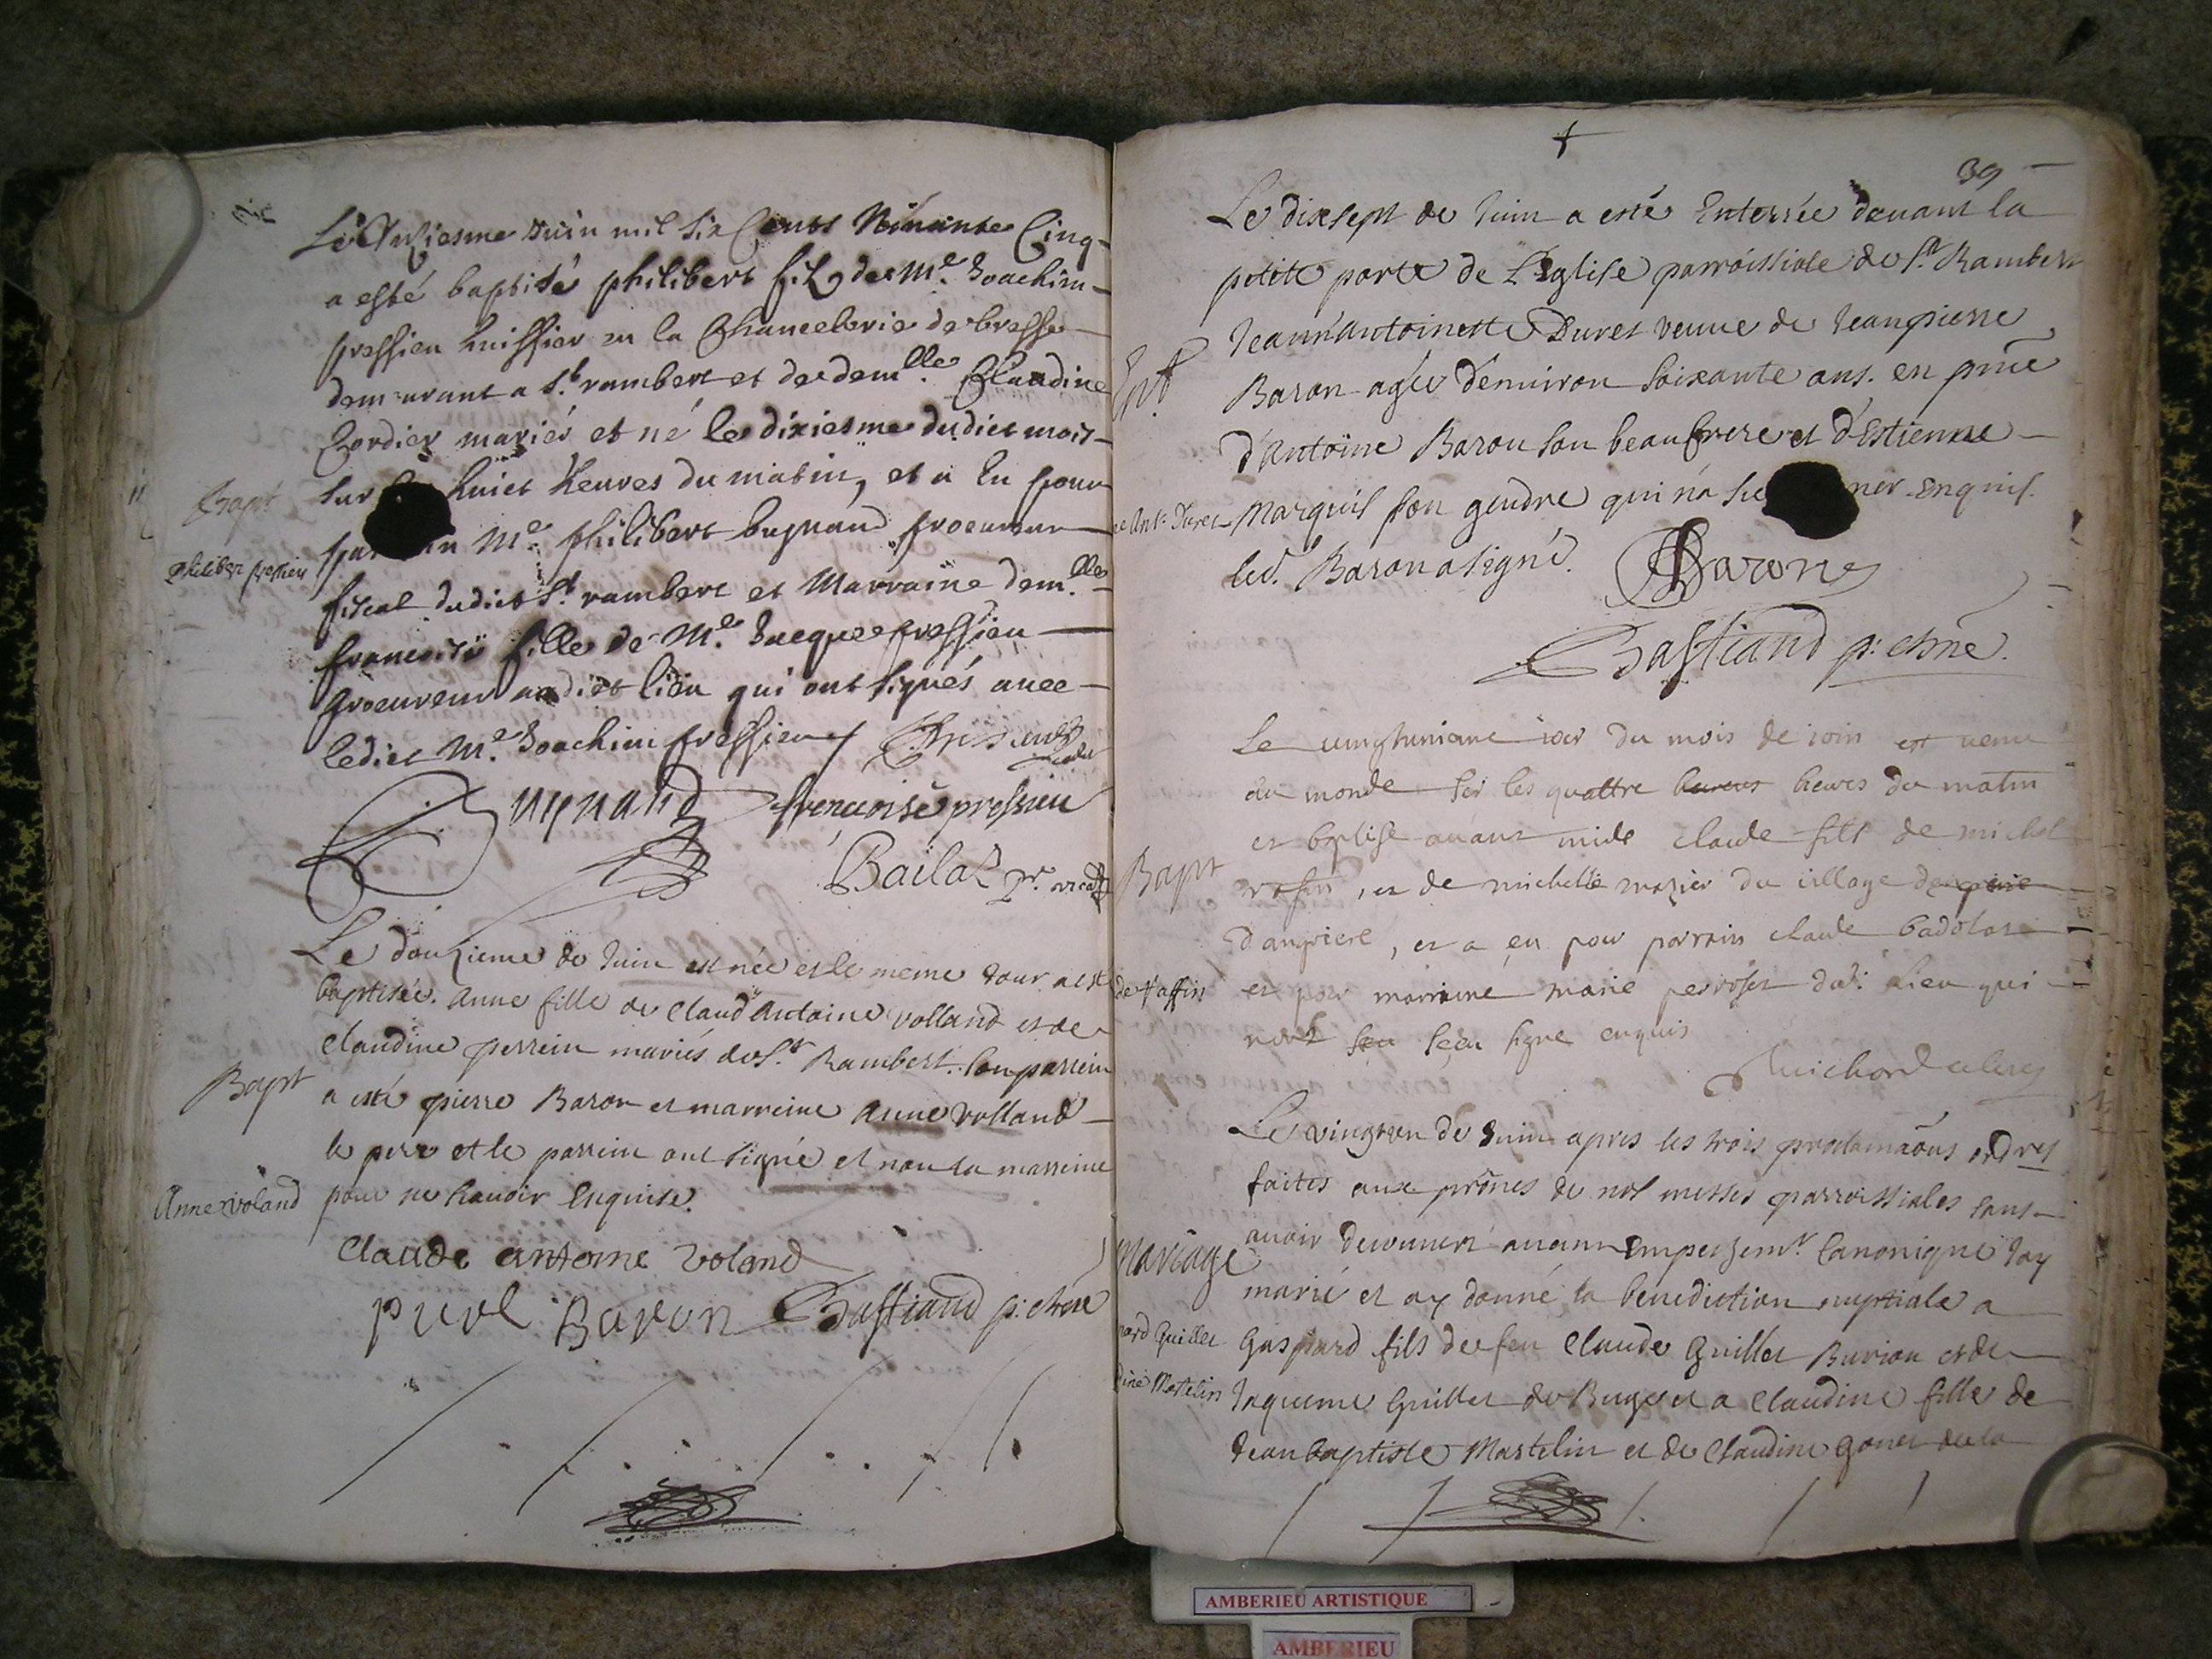 Le Onziesme Juin mil six Cents Nonante Cinq
a esté baptisé philibert filz de Me. Joachim
pressieu huissier en la Chancelerie de bresse
demeurant a St. rambert et de demlle. Claudine
Cordier mariés et né le dixiesme dudict mois
Bapt
sur huict heures du matin, et a Eu pour
Me. philibert bugnand procureur
philiber pressieu
fiscal dudict St. rambert et Marraine demlle.
francoise fille de Me. Jacques pressieu
procureur audict lieu qui ont signés avec
ledict Me. Joachim pressieu
Bugnand francoise pressieu
Bailat
Le douzieme de Juin est née et le meme Jour a esté
baptisée. Anne fille de Claud Antoine volland et de
Claudine perrein mariés de St. Rambert. Son parrein
Bapt
a esté pierre Baron et marreine Anne volland
le pere et le parrein ont signé et non la marreine
Anne voland
pour ne scavoir Enquise.
Claude antoine voland
Baron Bastiand p: chne
39
Le dixsept de Juin a esté Enterrée devant la
petite porte de L'Eglise parroissiale de St. Rambert
Jeann'antoinette Duret veuve de Jeanpierre
Ent
Baron agée d'environ soixante ans. en pnce
d'antoine Baron son beaufrere et d'Estienne
Ant. Duret
Marquis son gendre qui n'a ner Enquis.
led. Baron a signé. Baron
Bastiand p: chne.
Le jour du mois de join est venu
au monde sur les quattre heures du matin
et avant midi claude fils de michel
Bapt
rafin, et de michelle mazier du village
d'angriere, et a eu pour parrain claude badolas
de Raffin
et pour marraine marie perroset dud: lieu qui
n'ont signe enquis
Le vingtun de Juin apres les trois proclamaons
faites aux prônes de nos messes parroissiales sans
avoir decouvert aucun Empeschemt. Canonique J'ay
Mariage
marié et ay donné la benediction nuptiale a
pard Guillet
Gaspard fils de feu Claude Guillet Burion et de
dine Mastelin
Jaqueme Guillet de Buges et a Claudine fille de
Jeanbaptiste Mastelin et de Claudine Ganet de la
AMBERIEU ARTISTIQUE
AMBERIEU